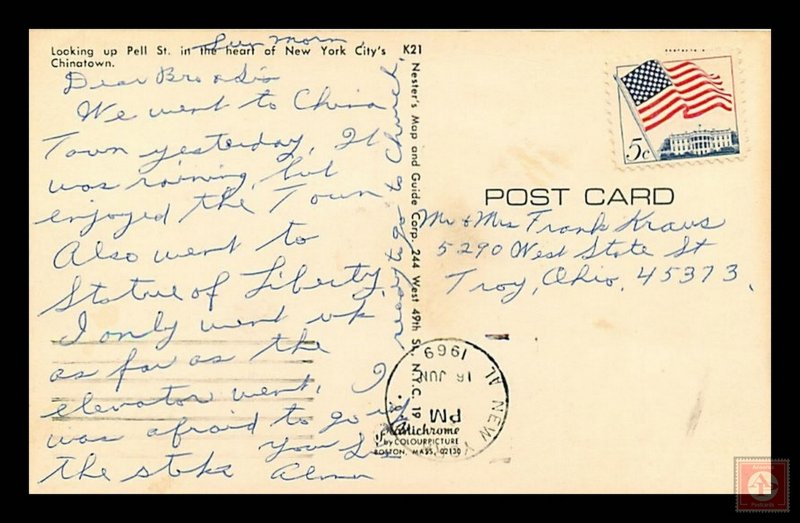 Looking up Pell St. in the heart of New York City's Chinatown.
K21
Sun Morn.
Dear
We went to China
Town yesterday, It
was raining, but
enjoyed the Town
Also went to
Statue of Liberty,
I only went up
as far as the
elevator went, I
was afraid to go up
the steps
Alma
ready to go to Church.
Nester's Map and Guide Corp. 244 West 49th St., N.Y.C. 19
Plastichrome
by COLOURPICTURE
BOSTON, MASS. 02130
5c
POST CARD
Mr & Mrs Frank Kraus
5290 West State St
Troy, Ohio, 45373.
NEW
PM
16 JUN
1969